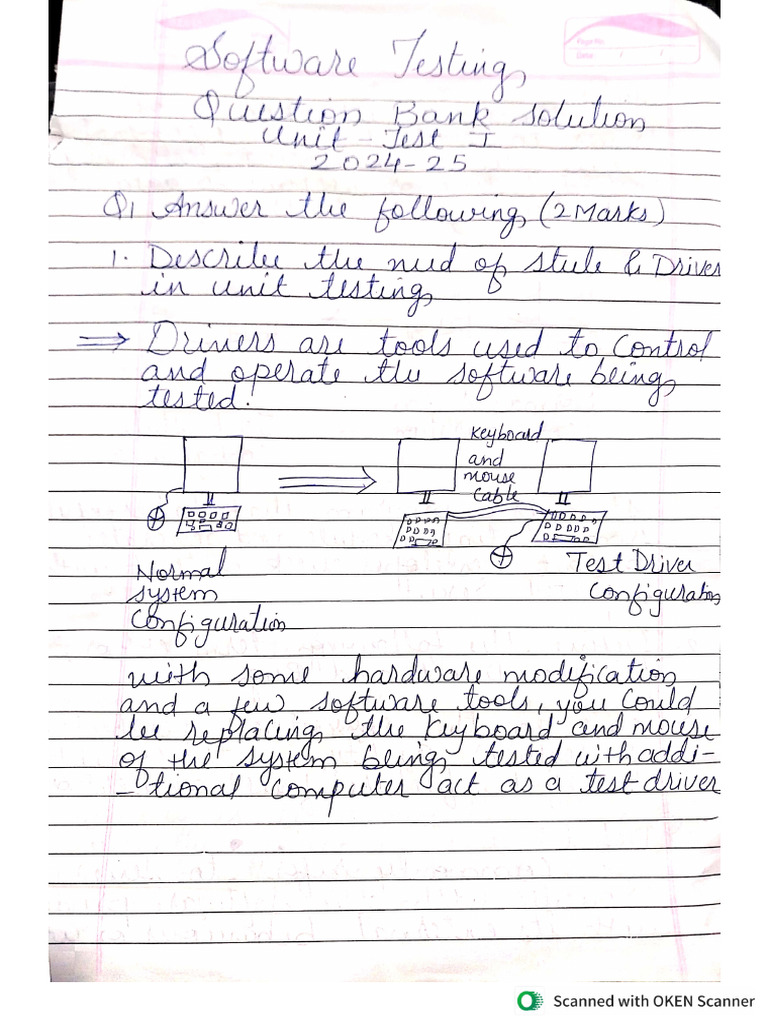 Page No.
Date
Software Testing
Question Bank Solution
Unit - Test I
2024-25
Q1 Answer the following (2 Marks)
1. Describe the need of stub & Driver
in unit testing
⇒ Drivers are tools used to control
and operate the software being
tested.
Keyboard
and
mouse
Cable
Normal
system
Configuration
Test Driver
Configuration
with some hardware modification
and a few software tools, you could
be replacing the keyboard and mouse
of the system being tested with addi-
-tional computer act as a test driver
Scanned with OKEN Scanner